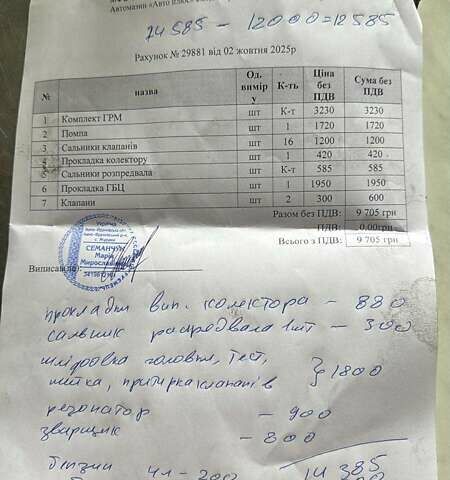 Автомагазин «Авто плюс»
24 585 - 12000 = 12585
Рахунок № 29881 від 02 жовтня 2025р
№ назва Од. виміру К-ть Ціна без ПДВ Сума без ПДВ
1 Комплект ГРМ шт К-т 3230 3230
2 Помпа шт 1 1720 1720
3 Сальники клапанів шт 16 1200 1200
4 Прокладка колектору шт 1 420 420
5 Сальники розпредвала шт К-т 585 585
6 Прокладка ГБЦ шт 1 1950 1950
7 Клапани шт 2 300 600
Разом без ПДВ: 9 705 грн
ПДВ: 0.00грн
Всього з ПДВ: 9 705 грн
Україна
СЕМАНЧУК
Марія
Мирославівна
Виписав(ла):
прокладки вип. колектора - 880
сальник распредвала 1шт - 300
шліфовка головки, тест,
митка, притирка клапанів } 1800
резонатор - 900
зварщик - 800
бензин 4л - 200 14 385